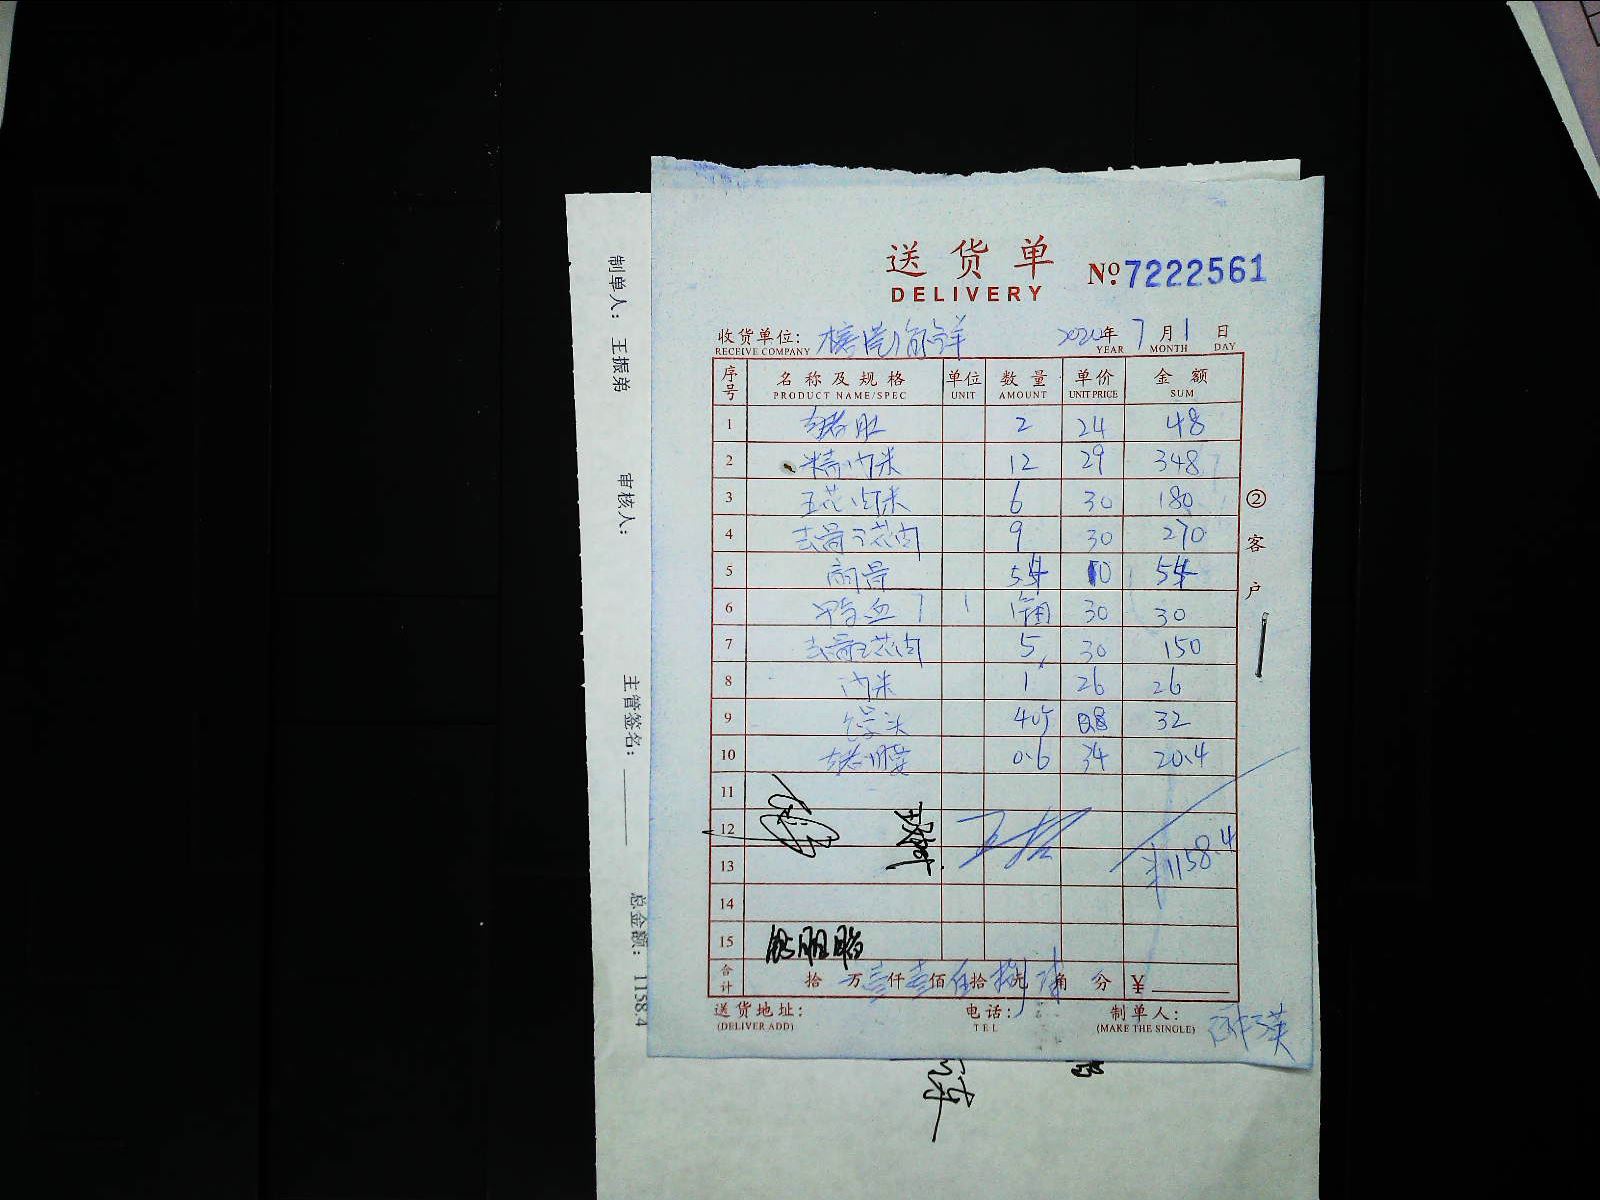 送货单
DELIVERY
№ 7222561
收货单位:
RECEIVE COMPANY
年 7 月 1 日
YEAR MONTH DAY
序号 名称及规格 单位 数量 单价 金额
PRODUCT NAME/SPEC UNIT AMOUNT UNIT PRICE SUM
1 猪肚 2 24 48
2 精肉米 12 29 348
3 五花肉米 6 30 180
4 去骨五花肉 9 30 270
5 骨 5.4 10 54
6 血 1桶 30 30
7 去骨五花肉 5 30 150
8 肉米 1 26 26
9 馒头 40个 0.8 32
10 猪腰 0.6 34 20.4
11
12
13 ¥1158.4
14
15
合计 拾 万 壹仟 壹佰 伍拾 捌元 肆角 分 ¥
送货地址:
(DELIVER ADD)
电话:
TEL
制单人:
(MAKE THE SINGLE)
②客户
制单人: 王振弟 审核人: 主管签名: 总金额: 1158.4